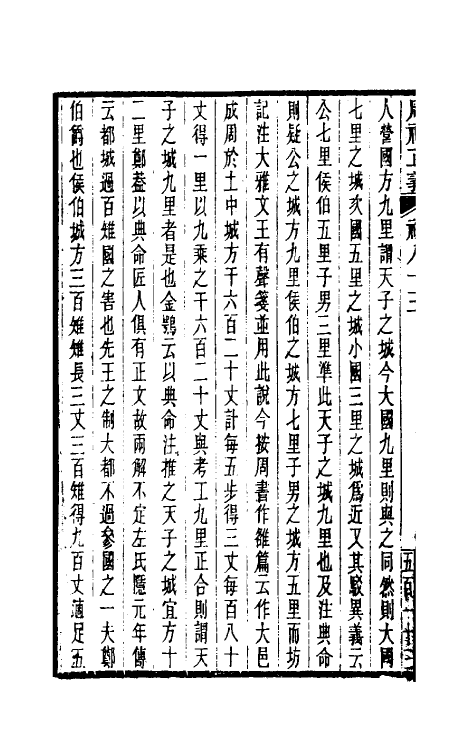 周禮正義
人營國方九里謂天子之城今大國九里則與之同然則大國
七里之城次國五里之城小國三里之城爲近又其駁異義云
公七里侯伯五里子男三里準此天子之城九里也及注典命
則疑公之城方九里侯伯之城方七里子男之城方五里而坊
記注大雅文王有聲箋並用此說今按周書作雒篇云作大邑
成周於土中城方千六百二十丈計每五步得三丈每百八十
丈得一里以九乘之千六百二十丈與考工九里正合則謂天
子之城九里者是也金鶚云以典命注推之天子之城宜方十
二里鄭葢以典命匠人俱有正文故兩解不定左氏隱元年傳
云都城過百雉國之害也先王之制大都不過參國之一夫鄭
伯爵也侯伯城方三百雉雉長三丈三百雉得九百丈適足五